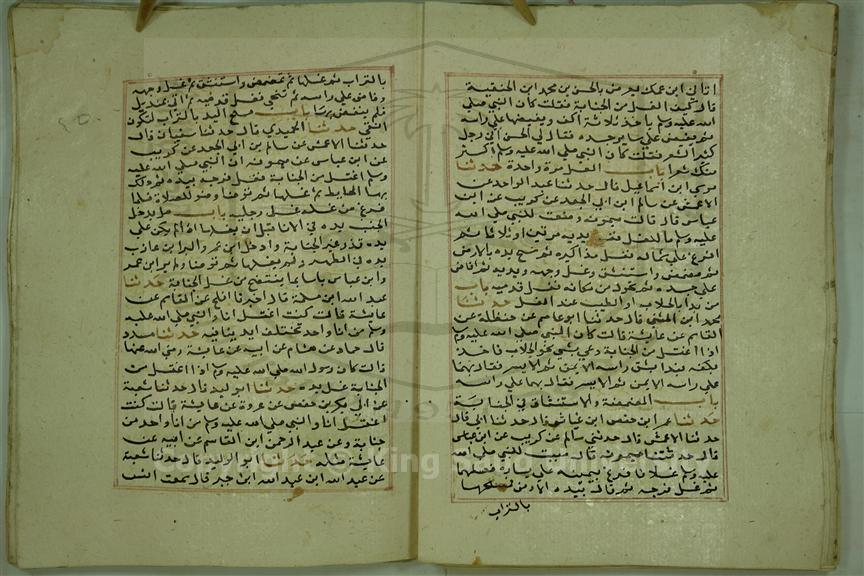 اتاني ابن عمك يعرض بالحسن بن محمد ابن الحنفية
قال كيف الغسل من الجنابة فقلت كان النبي صلى
الله عليه وسلم ياخذ ثلاثة اكف ويفيضها على راسه
ثم يفيض على سائر جسده فقال لي الحسن اني رجل
كثير الشعر فقلت كان النبي صلى الله عليه وسلم اكثر
منك شعرا باب الغسل مرة واحدة حدثنا
موسى ابن اسماعيل قال حدثنا عبد الواحد عن
الاعمش عن سالم ابن ابي الجعد عن كريب عن ابن
عباس قال قالت ميمونة وضعت للنبي صلى الله
عليه وسلم ماء للغسل فغسل يديه مرتين او ثلاثا ثم
افرغ على شماله فغسل مذاكيره ثم مسح يده بالارض
ثم مضمض واستنشق وغسل وجهه ويديه ثم افاض
على جسده ثم تحول من مكانه فغسل قدميه باب
من بدا بالحلاب او الطيب عند الغسل حدثنا
محمد ابن المثنى قال حدثنا ابو عاصم عن حنظلة عن
القاسم عن عائشة قالت كان النبي صلى الله عليه وسلم
اذا اغتسل من الجنابة دعى بشي نحو الحلاب فاخذ
بكفه فبدا بشق راسه الايمن ثم الايسر فقال بهما
على راسه الايمن ثم الايسر فقال بهما على راسه
باب المضمضة والاستنشاق في الجنابة
حدثنا عمر ابن حفص ابن غياث قال حدثنا ابي قال
حدثنا الاعمش قال حدثني سالم عن كريب عن ابن عباس
قال حدثتنا ميمونة قالت صببت للنبي صلى الله
عليه وسلم غسلا فافرغ بيمينه على يساره فغسلها
ثم غسل فرجه ثم قال بيده الارض فمسحها
بالتراب
بالتراب ثم غسلها ثم تمضمض واستنشق ثم غسل وجهه
وفاض على راسه ثم تنحى فغسل قدميه ثم اتي بمنديل
فلم ينفض بها باب مسح اليد بالتراب لتكون
انقى حدثنا الحميدي قال حدثنا سفيان قال
حدثنا الاعمش عن سالم بن ابي الجعد عن كريب
عن ابن عباس عن ميمونة ان النبي صلى الله عليه
وسلم اغتسل من الجنابة فغسل فرجه بيده ثم دلك
بها الحائط ثم غسلها ثم توضا وضوء للصلاة فلما
فرغ من غسله غسل رجليه باب هل يدخل
الجنب يده في الاناء قبل ان يغسلها اذا لم يكن على
يده قذر غير الجنابة وادخل ابن عمر والبرا ابن عازب
يده في الطهور ولم يغسلها ثم توضا ولم ير ابن عمر
وابن عباس باسا بما ينتضح من غسل الجنابة حدثنا
عبد الله ابن مسلمة قال اخبرنا افلح عن القاسم عن
عائشة قالت كنت اغتسل انا والنبي صلى الله عليه
وسلم من اناء واحد تختلف ايدينا فيه حدثنا مسدد
قال حماد عن هشام عن ابيه عن عائشة رضي الله عنها
قالت كان رسول الله صلى الله عليه وسلم اذا اغتسل من
الجنابة غسل يده حدثنا ابو الوليد قال حدثنا شعبة
عن ابي بكر بن حفص عن عروة عن عائشة قالت كنت
اغتسل انا والنبي صلى الله عليه وسلم من اناء واحد من
جنابة وعن عبد الرحمن ابن القاسم عن ابيه عن
عائشة مثله حدثنا ابو الوليد قال حدثنا شعبة
عن عبد الله ابن عبد الله ابن جبر قال سمعت انس